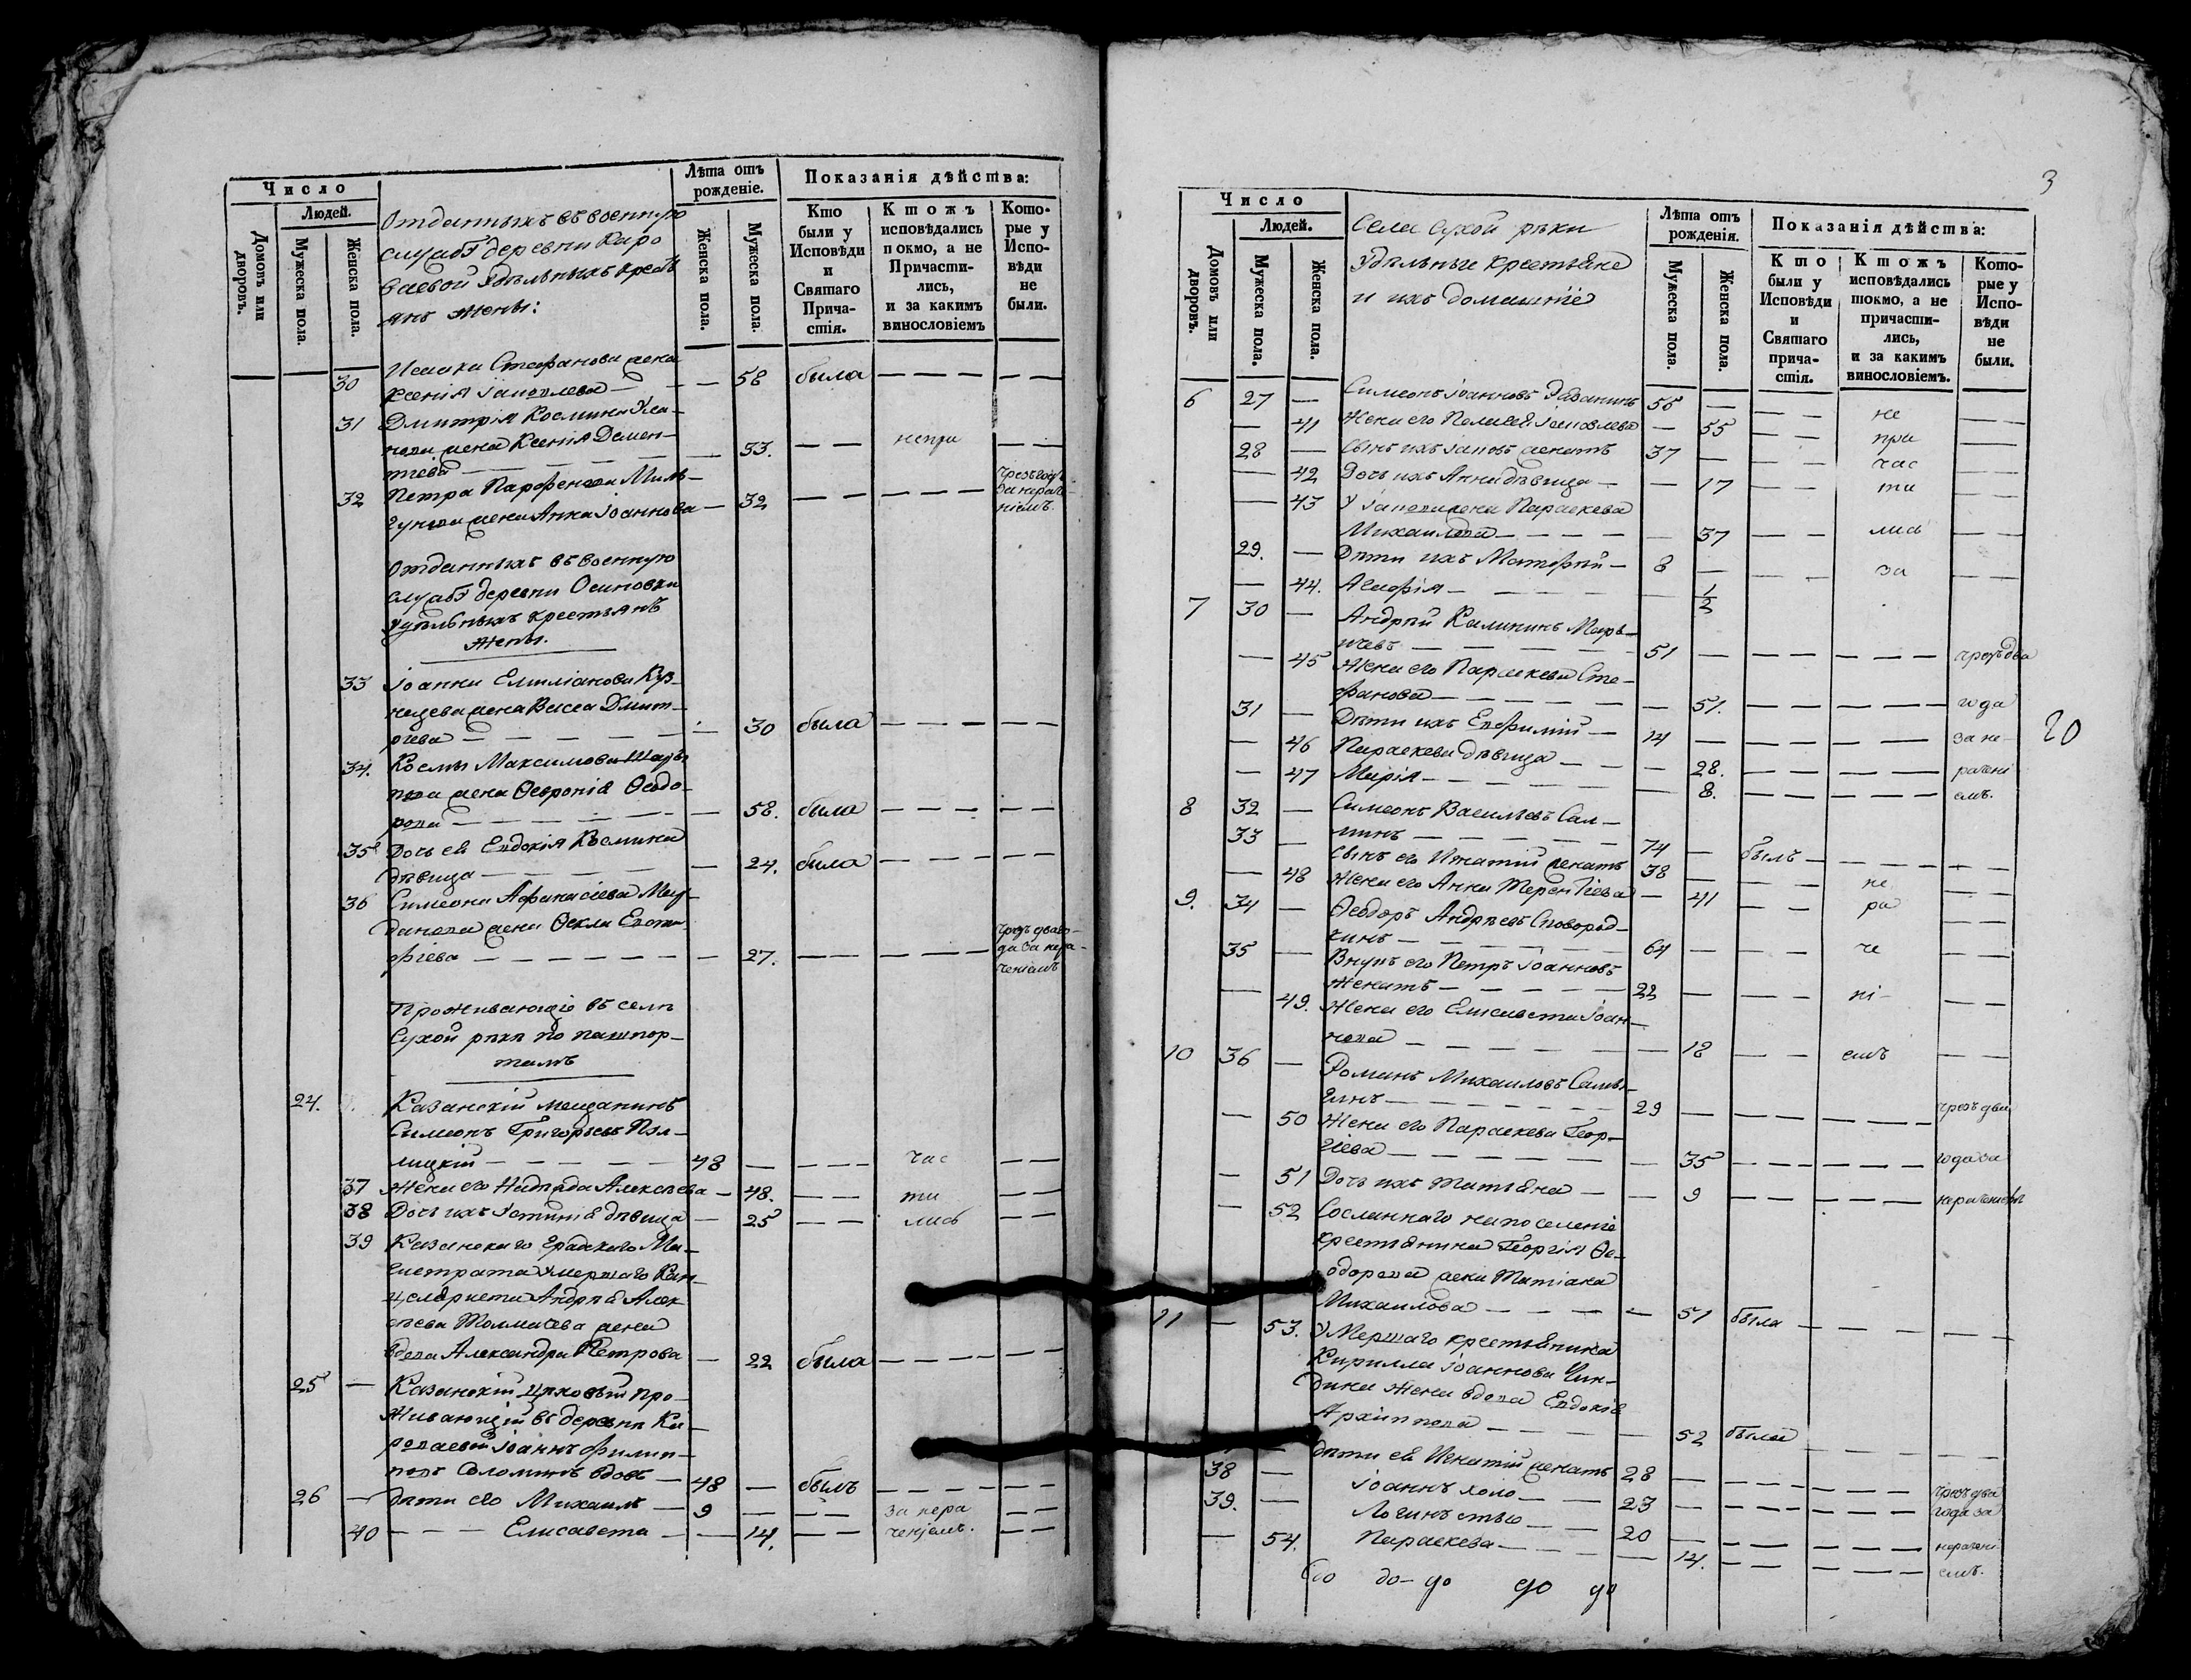 Число
Людей.
Домовъ или дворовъ.
Мужеска пола.
Женска пола.
Отданныхъ въ военную
службу деревни Каро
ваевой Удѣльныхъ кресть
янъ жены:
Лѣта отъ
рожденіе.
Женска пола.
Мужеска пола.
Показанія дѣйства:
Кто
были у
Исповѣди
и
Святаго
Прича-
стія.
Ктожъ
исповѣдались
покмо, а не
Причасти-
лись,
и за какимъ
винословіемъ
Кото-
рые у
Испо-
вѣди
не
были.
30 Исаака Стефанова жена
Ксенія Іаковлева — — 58 была — — — — —
31 Дмитрія Космина
жена Ксенія Демен-
тіева — — 53. — — непри — —
32 Петра Парфенова
жена Анна Іоаннова — 32 — — — — — чрезъ годъ
за нераче-
ніемъ.
Отданныхъ въ военную
службу деревни Осиновки
удѣльныхъ крестьянъ
жены.
33 Іоанна Емиліанова Куз-
нецова жена Васса Дмит-
ріева — — — — 30 была — — — — —
34. Космы Максимова
жена Ѳевронія Ѳеодо-
рова — — — — 58. была — — — — —
35 Дочь ея Евдокія Космина
дѣвица — — — 24. была — — — — —
36 Симеона Афанасіева
жена Ѳекла
фіева — — — — 27. — — — — — чрезъ два го-
да за нера-
ченіемъ
Проживающіе въ селѣ
Сухой рѣкѣ по пашпор-
тамъ
24. Казанскій мещанинъ
Симеонъ Григорьевъ
лицкій — — — 48 — — — — час — —
37 Жена его Надежда Алексѣева — 48. — — ти — —
38 Дочь ихъ Устинія дѣвица — 25 — — лись — —
39 Казанскаго Градскаго Ма-
гистрата умершаго Кан-
целяриста Андрея Алек
сѣева Толмачева жена
вдова Александра Петрова — 22 была — — — — —
25 — Казанскій цѣховый про-
живающій въ деревнѣ Ка-
роваевой Іоаннъ Филип-
повъ Соломинъ вдовъ — 48 — былъ — — — — —
26 — Дѣти его Михаилъ — 9 — — — за нера — —
40 — — — Елисавета — — 14. — — ченіемъ. — —
3
Число
Людей.
Домовъ или дворовъ.
Мужеска пола.
Женска пола.
Села Сухой рѣки
Удѣльные крестьяне
и ихъ домашніе
Лѣта отъ
рожденія.
Мужеска пола.
Женска пола.
Показанія дѣйства:
Кто
были у
Исповѣди
и
Святаго
прича-
стія.
Ктожъ
исповѣдались
токмо, а не
причасти-
лись,
и за какимъ
винословіемъ.
Кото-
рые у
Испо-
вѣди
не
были.
6 27 — Симеонъ Іоанновъ 56 — — — не —
— 41 Жена его Пелагея Іаковлева — 55 — — при —
28 — Сынъ ихъ Іаковъ женатъ 37 — — — час —
— 42 Дочь ихъ Анна дѣвица — — 17 — — ти —
— 43 У Іакова жена Параскева
Михаилова — — — — — 37 — — лись — —
29. — Дѣти ихъ Матѳей — 8 — — — за — —
— 44. — — — — — 1/2
7 30 — Андрей Калининъ
чевъ — — — — 51 — — — — — — чрезъ два
— 45 Жена его Параскева Сте-
фанова — — — — — 51. — — — — — года
31 — Дѣти ихъ Евфимій — 14 — — — — — — за не-
— 46 Параскева дѣвица — — — 28. — — — — — рачені
— 47 Марія — — — — — 8. — — — — — емъ.
8 32 — Симеонъ Васильевъ Сал-
нинъ — — — — 74 — былъ — — — — —
33 — Сынъ его Игнатій женатъ 38 — — — не —
— 48 Жена его Анна Терентіева — 41 — — ра —
9. 34 — Ѳеодоръ Андреевъ Сковород-
кинъ — — — — 64 — — — че —
35 — Внукъ его Петръ Іоанновъ
женатъ — — — — 22 — — — ні- — —
— 49. Жена его Елисавета Іоан-
нова — — — — — 18 — — емъ — —
10 36 — Романъ Михаиловъ
гинъ — — — — 29 — — — — — — чрезъ два
— 50 Жена его Параскева Геор-
гіева — — — — — 35 — — — — — года за
— 51 Дочь ихъ Татьяна — — 9 — — — — — нераченіемъ
— 52 Сосланнаго на поселеніе
крестьянина Георгія Ѳе-
одорова жена Татіана
Михаилова — — — — 51 была — — — — —
11 — 53. Умершаго крестьянина
Кирилла Іоаннова
дина жена вдова Евдокія
Архиппова — — — — 52 была — — — — —
Дѣти ея Игнатій женатъ 28 — — — — — —
38 — Іоаннъ холо — — 23 — — — — — — чрезъ два
39. — Логинъ стые — — 20 — — — — — — года за
— 54. Параскева — — — — 14. — — — — — нерачені
емъ.
20